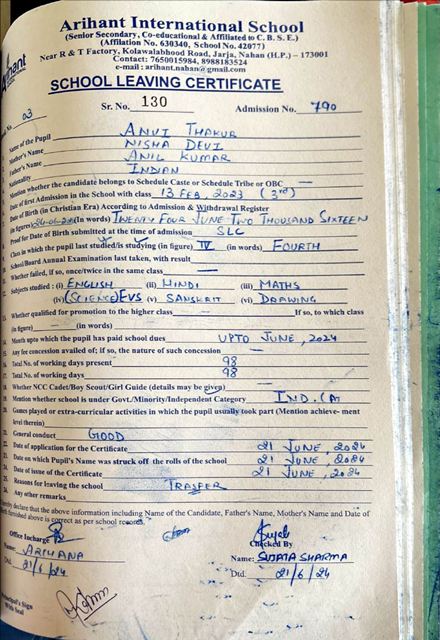 Arihant International School
(Senior Secondary, Co-educational & Affiliated to C. B. S. E.)
(Affilation No. 630340, School No. 42077)
Near R & T Factory, Kolawalabhood Road, Jarja, Nahan (H.P.) – 173001
Contact: 7650015984, 8988183524
e-mail : arihant.nahan@gmail.com
Arihant
SCHOOL LEAVING CERTIFICATE
Sr. No. 130 Admission No. 790
No. 03
Name of the Pupil ANVI THAKUR
Mother's Name NISHA DEVI
Father's Name ANIL KUMAR
Nationality INDIAN
Mention whether the candidate belongs to Schedule Caste or Schedule Tribe or OBC —
Date of first Admission in the School with class 13 FEB, 2023 (3rd)
Date of Birth (in Christian Era) According to Admission & Withdrawal Register
(in figure) (in words) TWENTY FOUR JUNE TWO THOUSAND SIXTEEN
Proof for Date of Birth submitted at the time of admission SLC
Class in which the pupil last studied/is studying (in figure) IV (in words) FOURTH
School/Board Annual Examination last taken, with result —
Whether failed, if so, once/twice in the same class —
Subjects studied : (i) ENGLISH (ii) HINDI (iii) MATHS
(iv) (SCIENCE) EVS (v) SANSKRIT (vi) DRAWING
Whether qualified for promotion to the higher class — If so, to which class
(in figure) — (in words)
Month upto which the pupil has paid school dues UPTO JUNE, 2024
Any fee concession availed of; if so, the nature of such concession —
Total No. of working days present 98
Total No. of working days 98
18. Whether NCC Cadet/Boy Scout/Girl Guide (details may be given) —
19. Mention whether school is under Govt./Minority/Independent Category IND. (
20. Games played or extra-curricular activities in which the pupil usually took part (Mention achieve- ment
level therein)
General conduct GOOD
22. Date of application for the Certificate 21 JUNE, 2024
23. Date on which Pupil's Name was struck off the rolls of the school 21 JUNE, 2024
24. Date of issue of the Certificate 21 JUNE, 2024
25. Reasons for leaving the school TRASFER
26. Any other remarks
hereby declare that the above information including Name of the Candidate, Father's Name, Mother's Name and Date of
Birth furnished above is correct as per school records.
Office Incharge Checked By
Name: ARIHANA Name: SUJATA SHARMA
Dtd. 21/6/24 Dtd. 21/6/24
Principal's Sign
With Seal